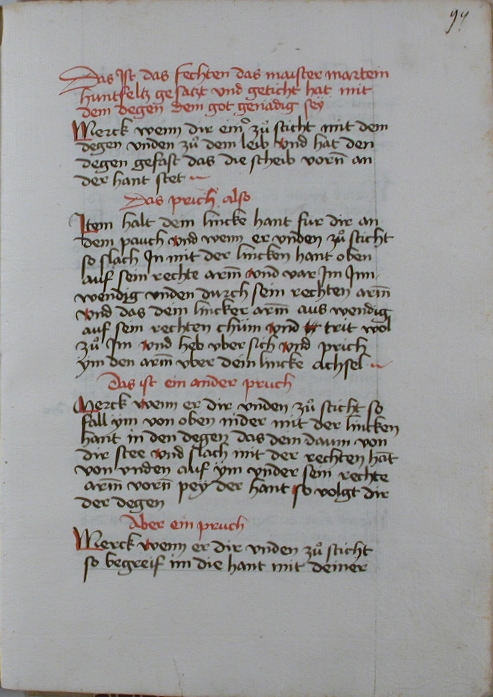 99
Das Ist das fechten das maister martein
huntfeltz gesatzt vnd geticht hat mit
dem degen dem got genadig sey
Merck wenn dir einer zů sticht mit dem
degen vnden zů dem leib vnd hat den
degen gefast das die scheib vorñ an
der hant stet
Das prich also
Item halt dein lincke hant fur dir an
dem pauch vnd wenn er vnden zů sticht
so slach In mit der lincken hant oben
auf sein rechte arm vnd var Im Inn
wendig vnden durch sein rechten arm
vnd das dein lincker arm aus wendig
auf sein rechten chům vnd trit wol
zů Im vnd heb vber sich vnd prich
ym den arm vber dein lincke Achsel
Das ist ein ander pruch
Merck wenn er dir vnden zů sticht so
fall ym von oben nider mit der lincken
hant in den degen das dein daum von
dir stee vnd slach mit der rechten hāt
von vnden auf ym vnder sein rechte
arm vorñ pey der hant so volgt dir
der degen
Aber ein pruch
Merck wenn er dir vnden zů sticht
so begreif im die hant mit deiner